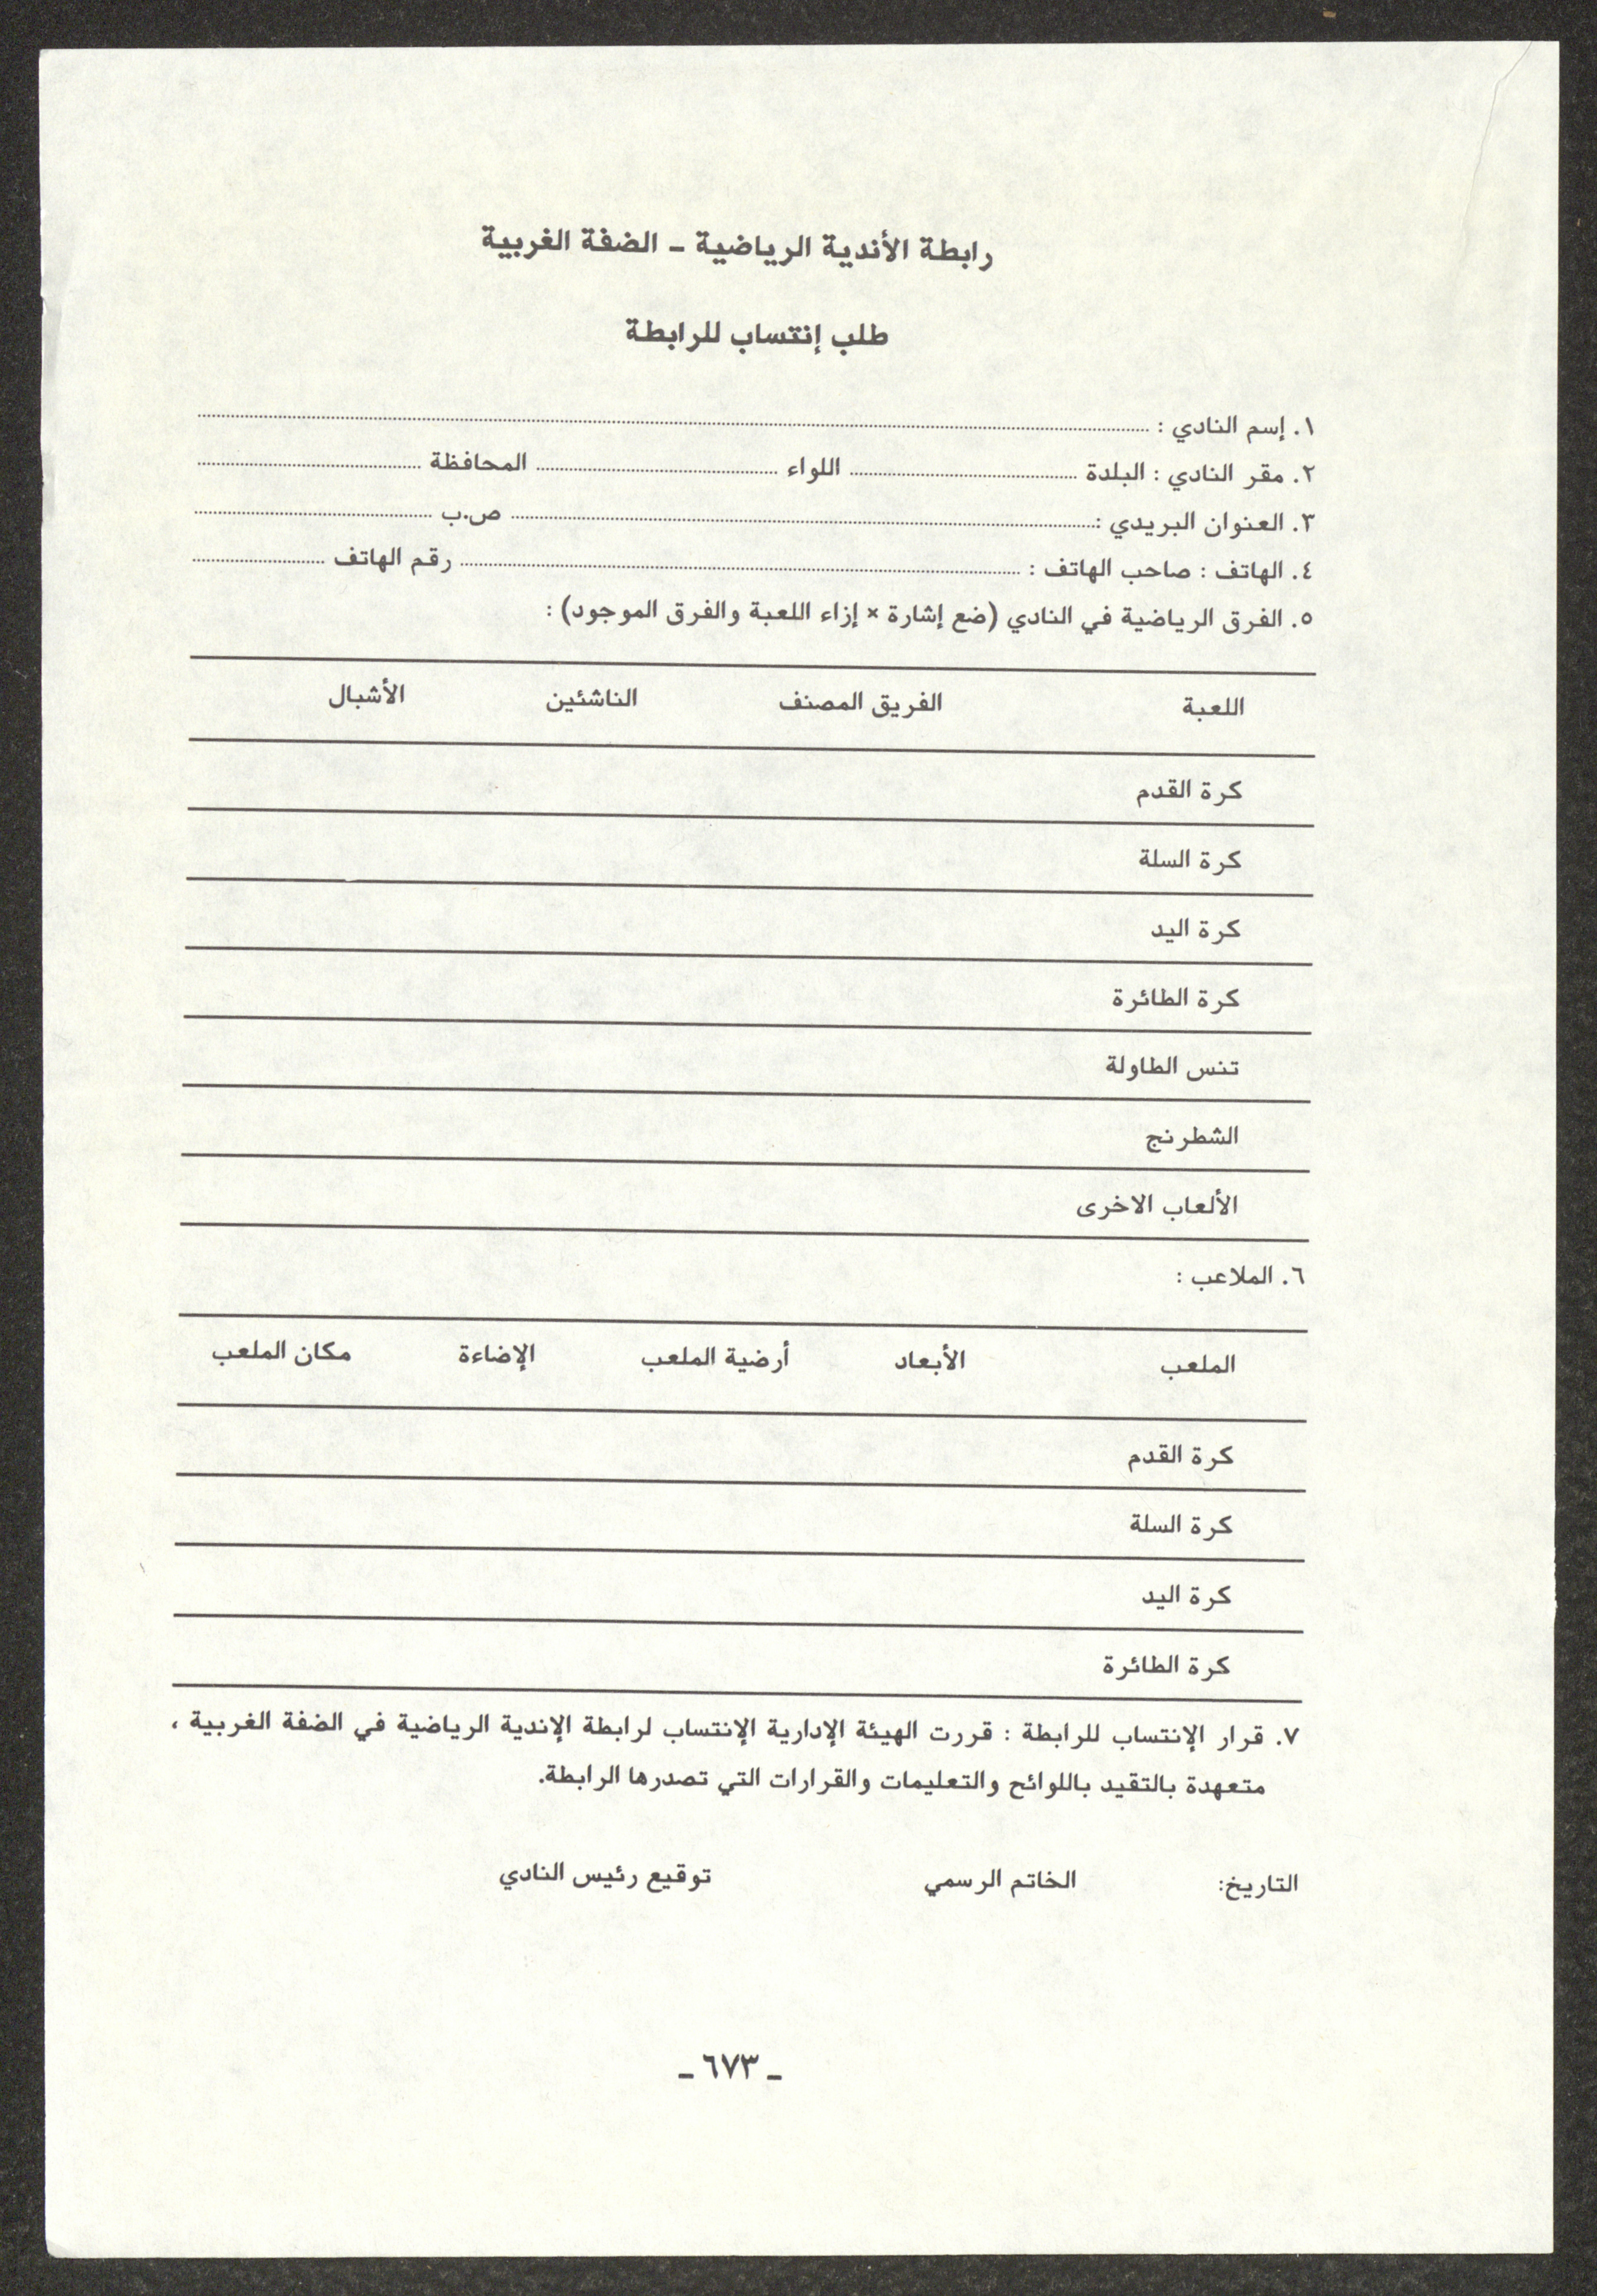 رابطة الأندية الرياضية - الضفة الغربية
طلب إنتساب للرابطة
١. إسم النادي :
٢. مقر النادي : البلدة اللواء المحافظة
٣. العنوان البريدي : ص.ب
٤. الهاتف : صاحب الهاتف : رقم الهاتف
٥. الفرق الرياضية في النادي (ضع إشارة × إزاء اللعبة والفرق الموجود) :
اللعبة الفريق المصنف الناشئين الأشبال
كرة القدم
كرة السلة
كرة اليد
كرة الطائرة
تنس الطاولة
الشطرنج
الألعاب الاخرى
٦. الملاعب :
الملعب الأبعاد أرضية الملعب الإضاءة مكان الملعب
كرة القدم
كرة السلة
كرة اليد
كرة الطائرة
٧. قرار الإنتساب للرابطة : قررت الهيئة الإدارية الإنتساب لرابطة الإندية الرياضية في الضفة الغربية ،
متعهدة بالتقيد باللوائح والتعليمات والقرارات التي تصدرها الرابطة.
التاريخ: الخاتم الرسمي توقيع رئيس النادي
- ٦٧٣ -